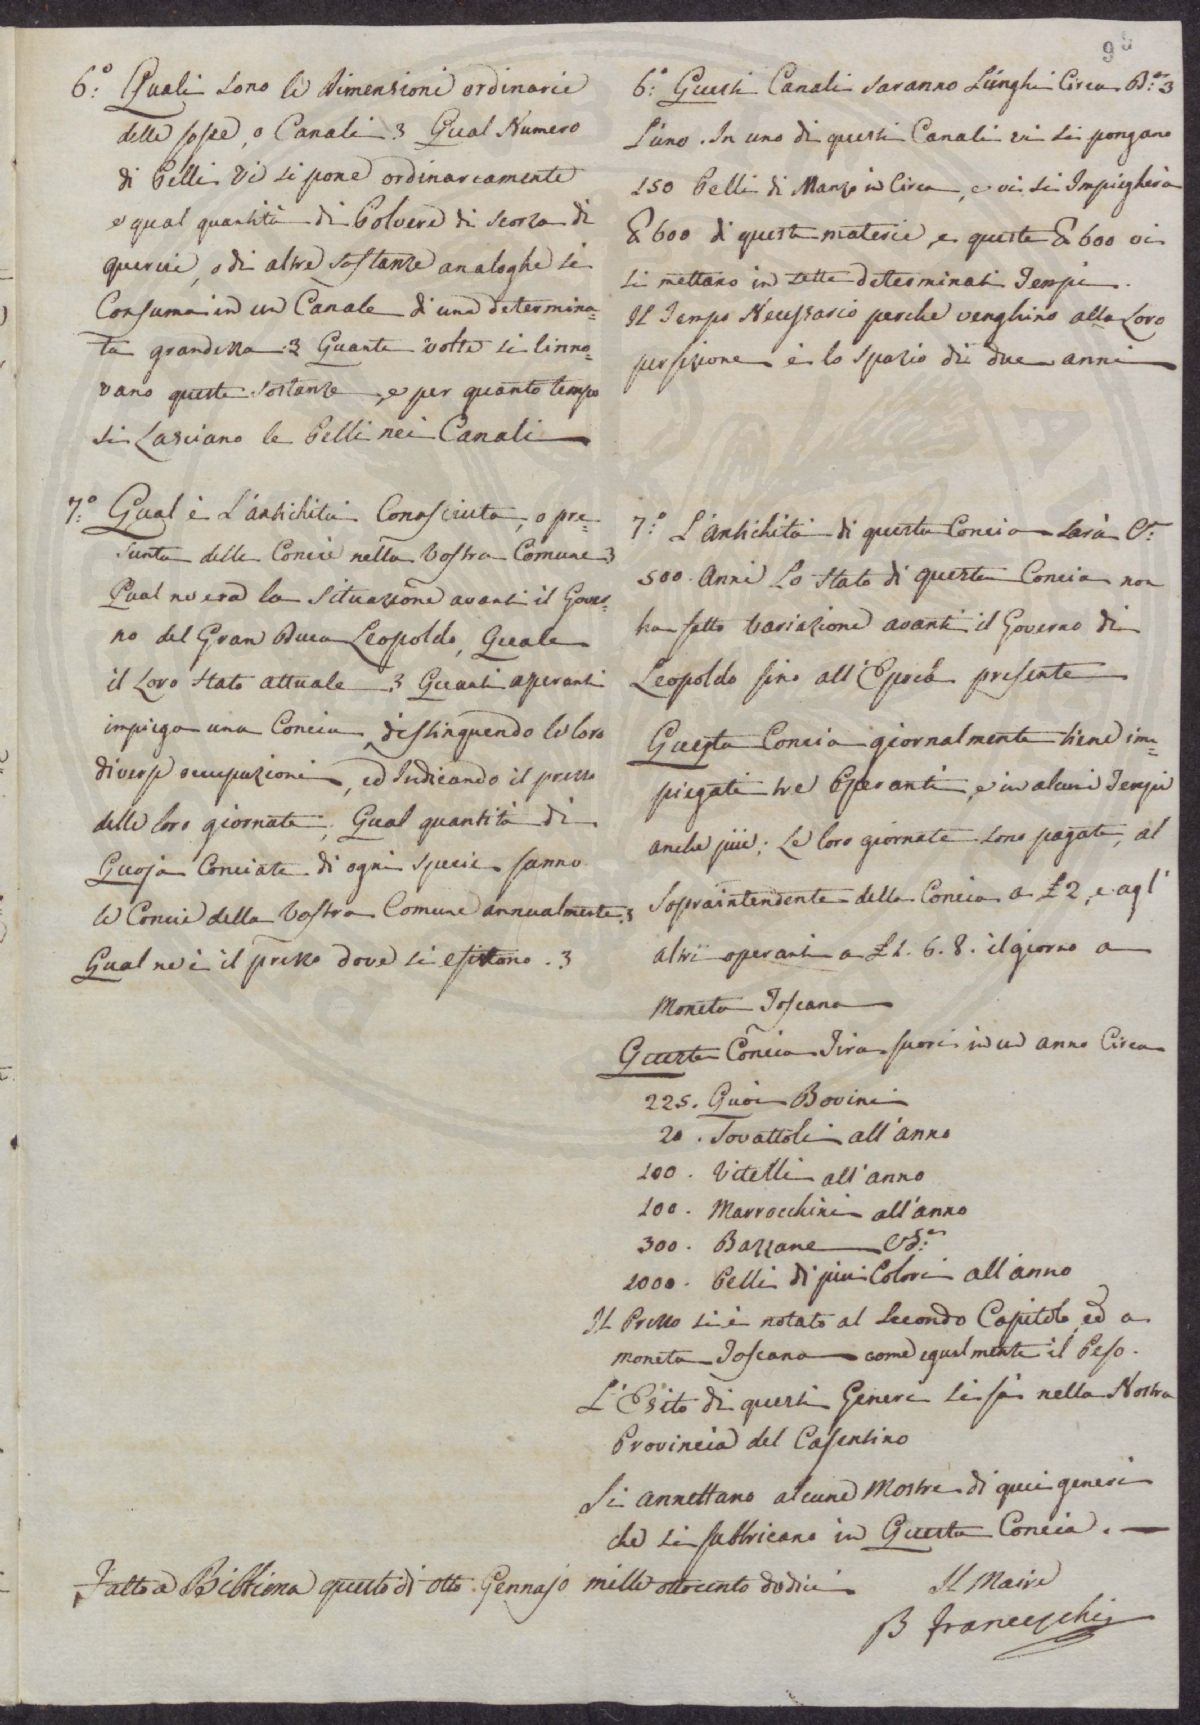 95
6.º Quali sono le dimensioni ordinarie
delle fosse, o Canali? Qual Numero
di Pelli vi si pone ordinariamente
e qual quantità di Polvere di scorza di
quercie, o di altre sostanze analoghe si
Consuma in un Canale di una determina=
ta grandezza? Quante volte si rinno=
vano queste sostanze, e per quanto tempo
si Lasciano le Pelli nei Canali
7.º Qual è L'antichità Conosciuta, o pre=
sunta delle Concie nella Vostra Comune?
Qual ne era la situazione avanti il Gover=
no del Gran Duca Leopoldo, Quale
il Loro stato attuale? Quanti operanti
impiega una Concia, distinguendo le loro
diverse occupazioni, ed Indicando il prezzo
delle loro giornate; Qual quantità di
Quoja Conciate di ogni specie fanno
le Concie della Vostra Comune annualmente?
Qual ne è il prezzo dove si esitono?
6.º Questi Canali saranno Lunghi Circa B.ª 3
L'uno. In uno di questi Canali vi si pongano
150 Pelli di Manzo in Circa, e vi si Impiegherà
₤ 600 di queste materie, e queste ₤ 600 vi
si mettano in sette determinati Tempi.
Il Tempo Necessario perche venghino alla Loro
perfezione è lo spazio di due anni
7.º L'Antichità di questa Concia sarà C.ª
500. Anni Lo stato di questa Concia non
ha fatto Variazione avanti il Governo di
Leopoldo fino all'Epoca presente
Questa Concia giornalmente tiene im=
piegati tre Operanti, e in alcuni Tempi
anche più; Le loro giornate sono pagate, al
Sopraintendente della Concia a £ 2, e agl'
altri operanti a £ 1. 6. 8. il giorno a
Moneta Toscana
Questa Concia Tira fuori in un anno Circa
225. Quoi Bovini
20. Tovattoli all'anno
100. Vitelli all'anno
100. Marrocchini all'anno
300. Bazzane
1000. Pelli di più Colori all'anno
Il Prezzo si è notato al Secondo Capitolo, ed a
moneta Toscana come egualmente il Peso.
L'Esito di questi Generi si fà nella Nostra
Provincia del Casentino
Si annettano alcune Mostre di quei generi
che si fabbricano in Questa Concia.
Fatto a Bibbiena questo dì otto Gennajo mille ottocento dodici
Il Maire
B Franceschi